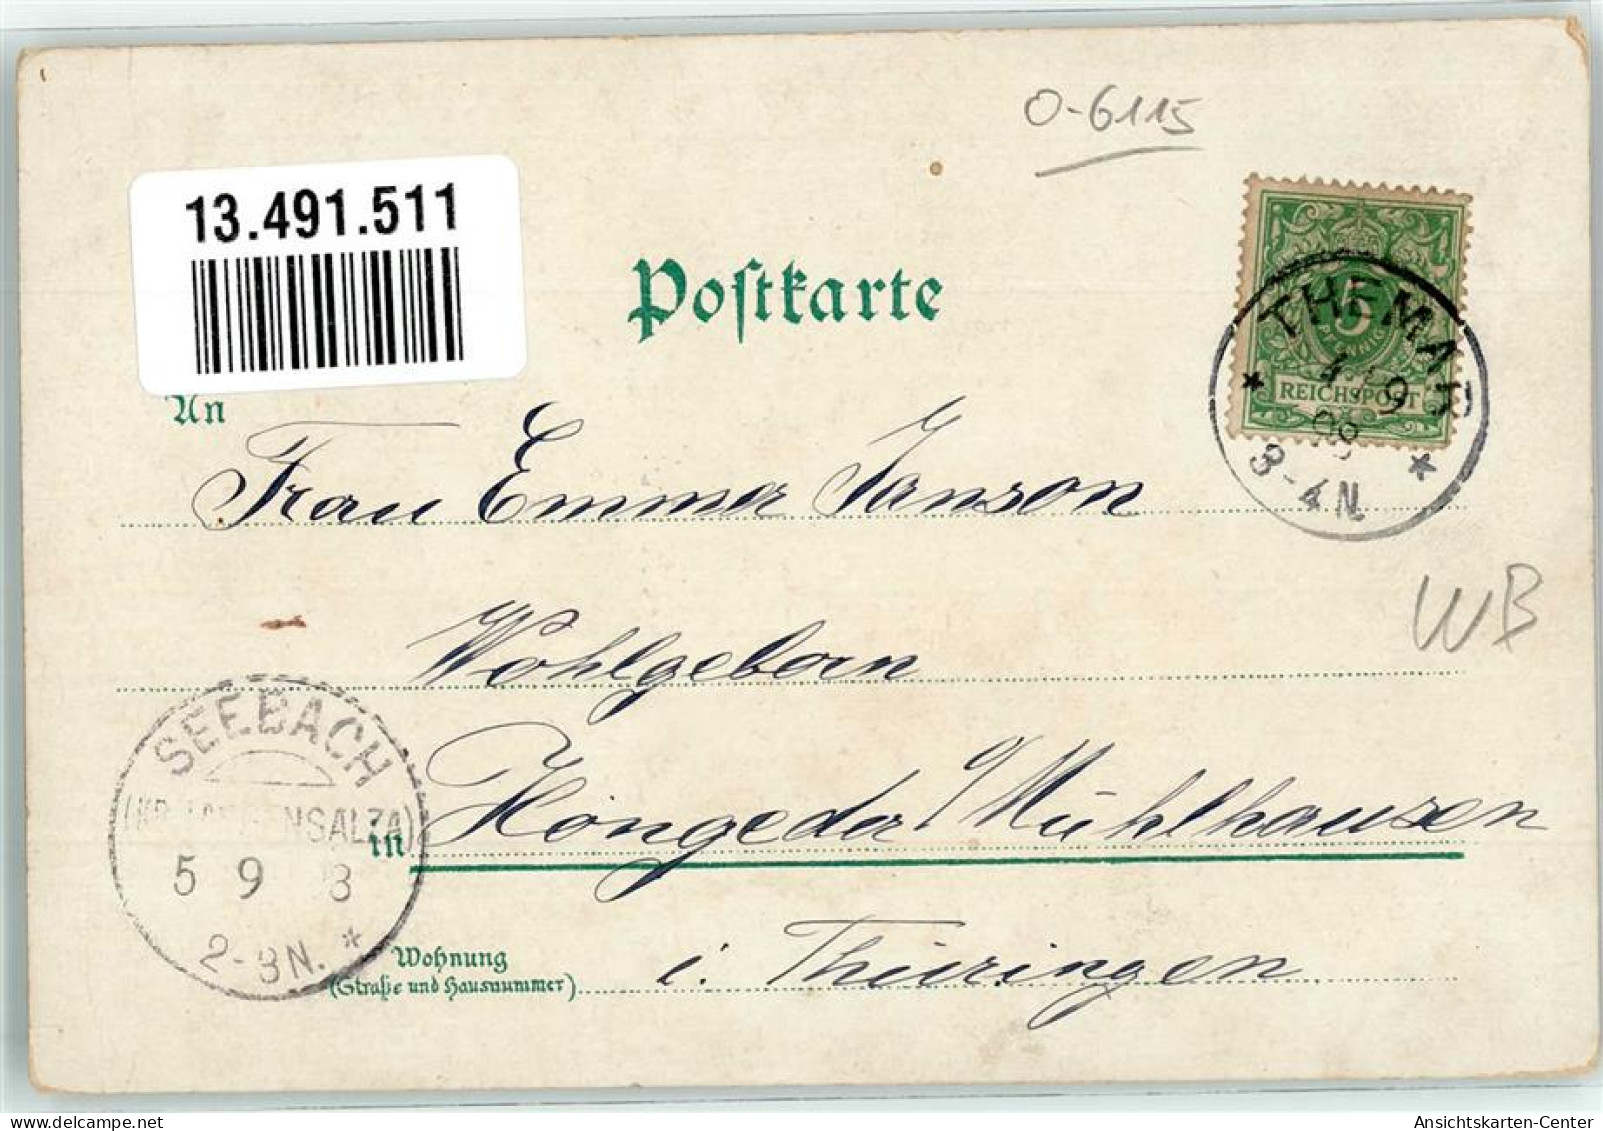 O-6115
13.491.511
Postkarte
5
PFENNIG
REICHSPOST
THEMAR
4 9
98
3-4N.
An
Frau Emma Janson
WB
Wohlgeborn
SEEBACH
(KR. LANGENSALZA)
5 9 8
2-3N.
in Höngeda b/Mühlhausen
Wohnung
(Straße und Hausnummer)
i. Thüringen
Ansichtskarten-Center